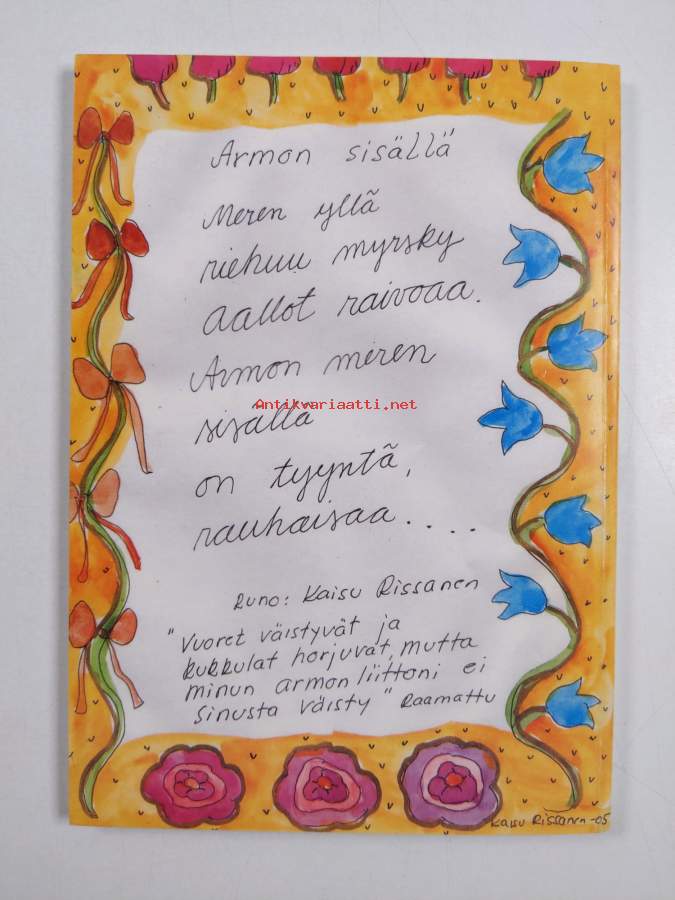 Armon sisällä
Meren yllä
riehuu myrsky
aallot raivoaa.
Armon meren
Antikvariaatti.net
sisällä
on tyyntä,
rauhaisaa....
Runo: Kaisu Rissanen
"Vuoret väistyvät ja
kukkulat horjuvat, mutta
minun armonliittoni ei
sinusta väisty" Raamattu
Kaisu Rissanen -05